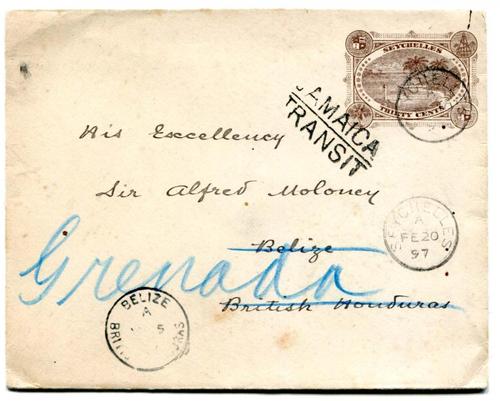 SEYCHELLES
THIRTY CENTS
JAMAICA
TRANSIT
His Excellency
Sir Alfred Moloney
Belize
Grenada
British Honduras
SEYCHELLES
A
FE 20
97
BELIZE
A
5